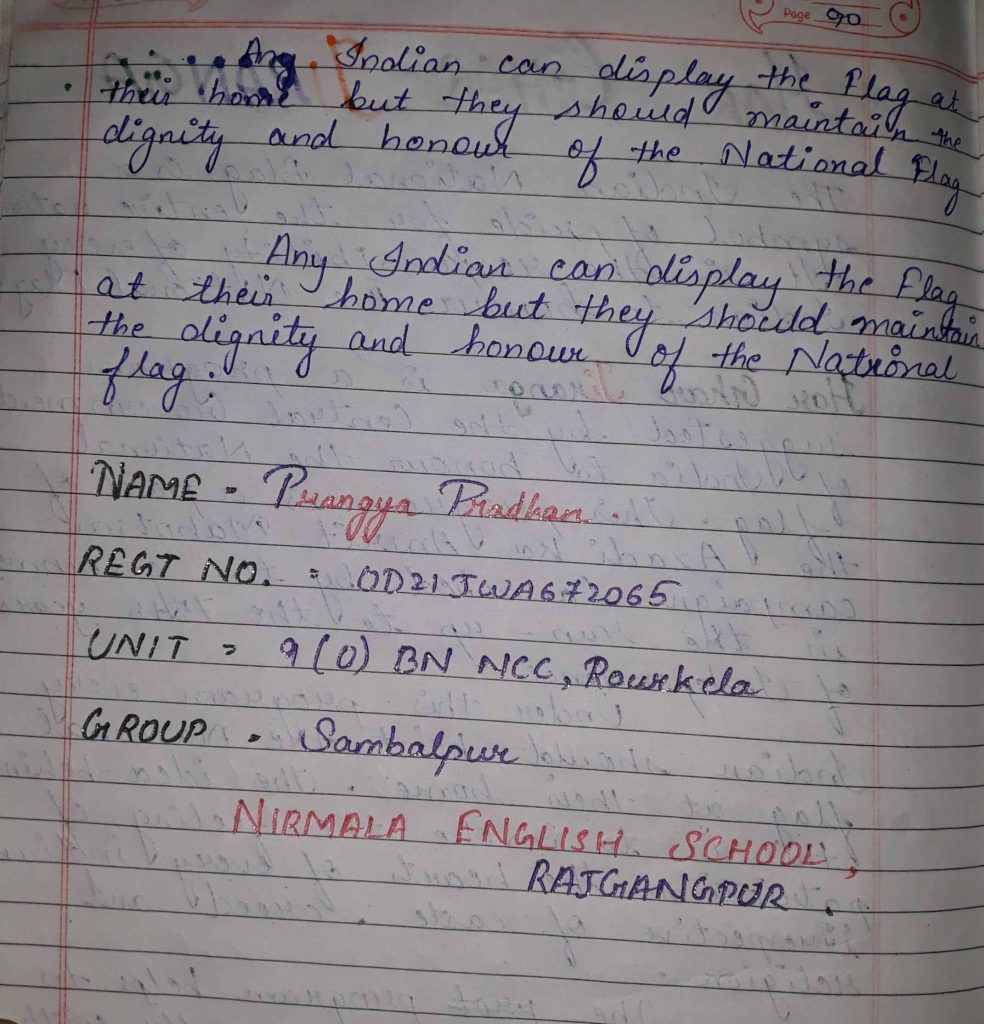 Page 90
Any Indian can display the flag at
their home but they should maintain the
dignity and honour of the National Flag
Any Indian can display the flag
at their home but they should maintain
the dignity and honour of the National
flag.
NAME - Prangya Pradhan.
REGT NO. = OD21JWA672065
UNIT = 9 (O) BN NCC, Rourkela
GROUP - Sambalpur
NIRMALA ENGLISH SCHOOL,
RAJGANGPUR.